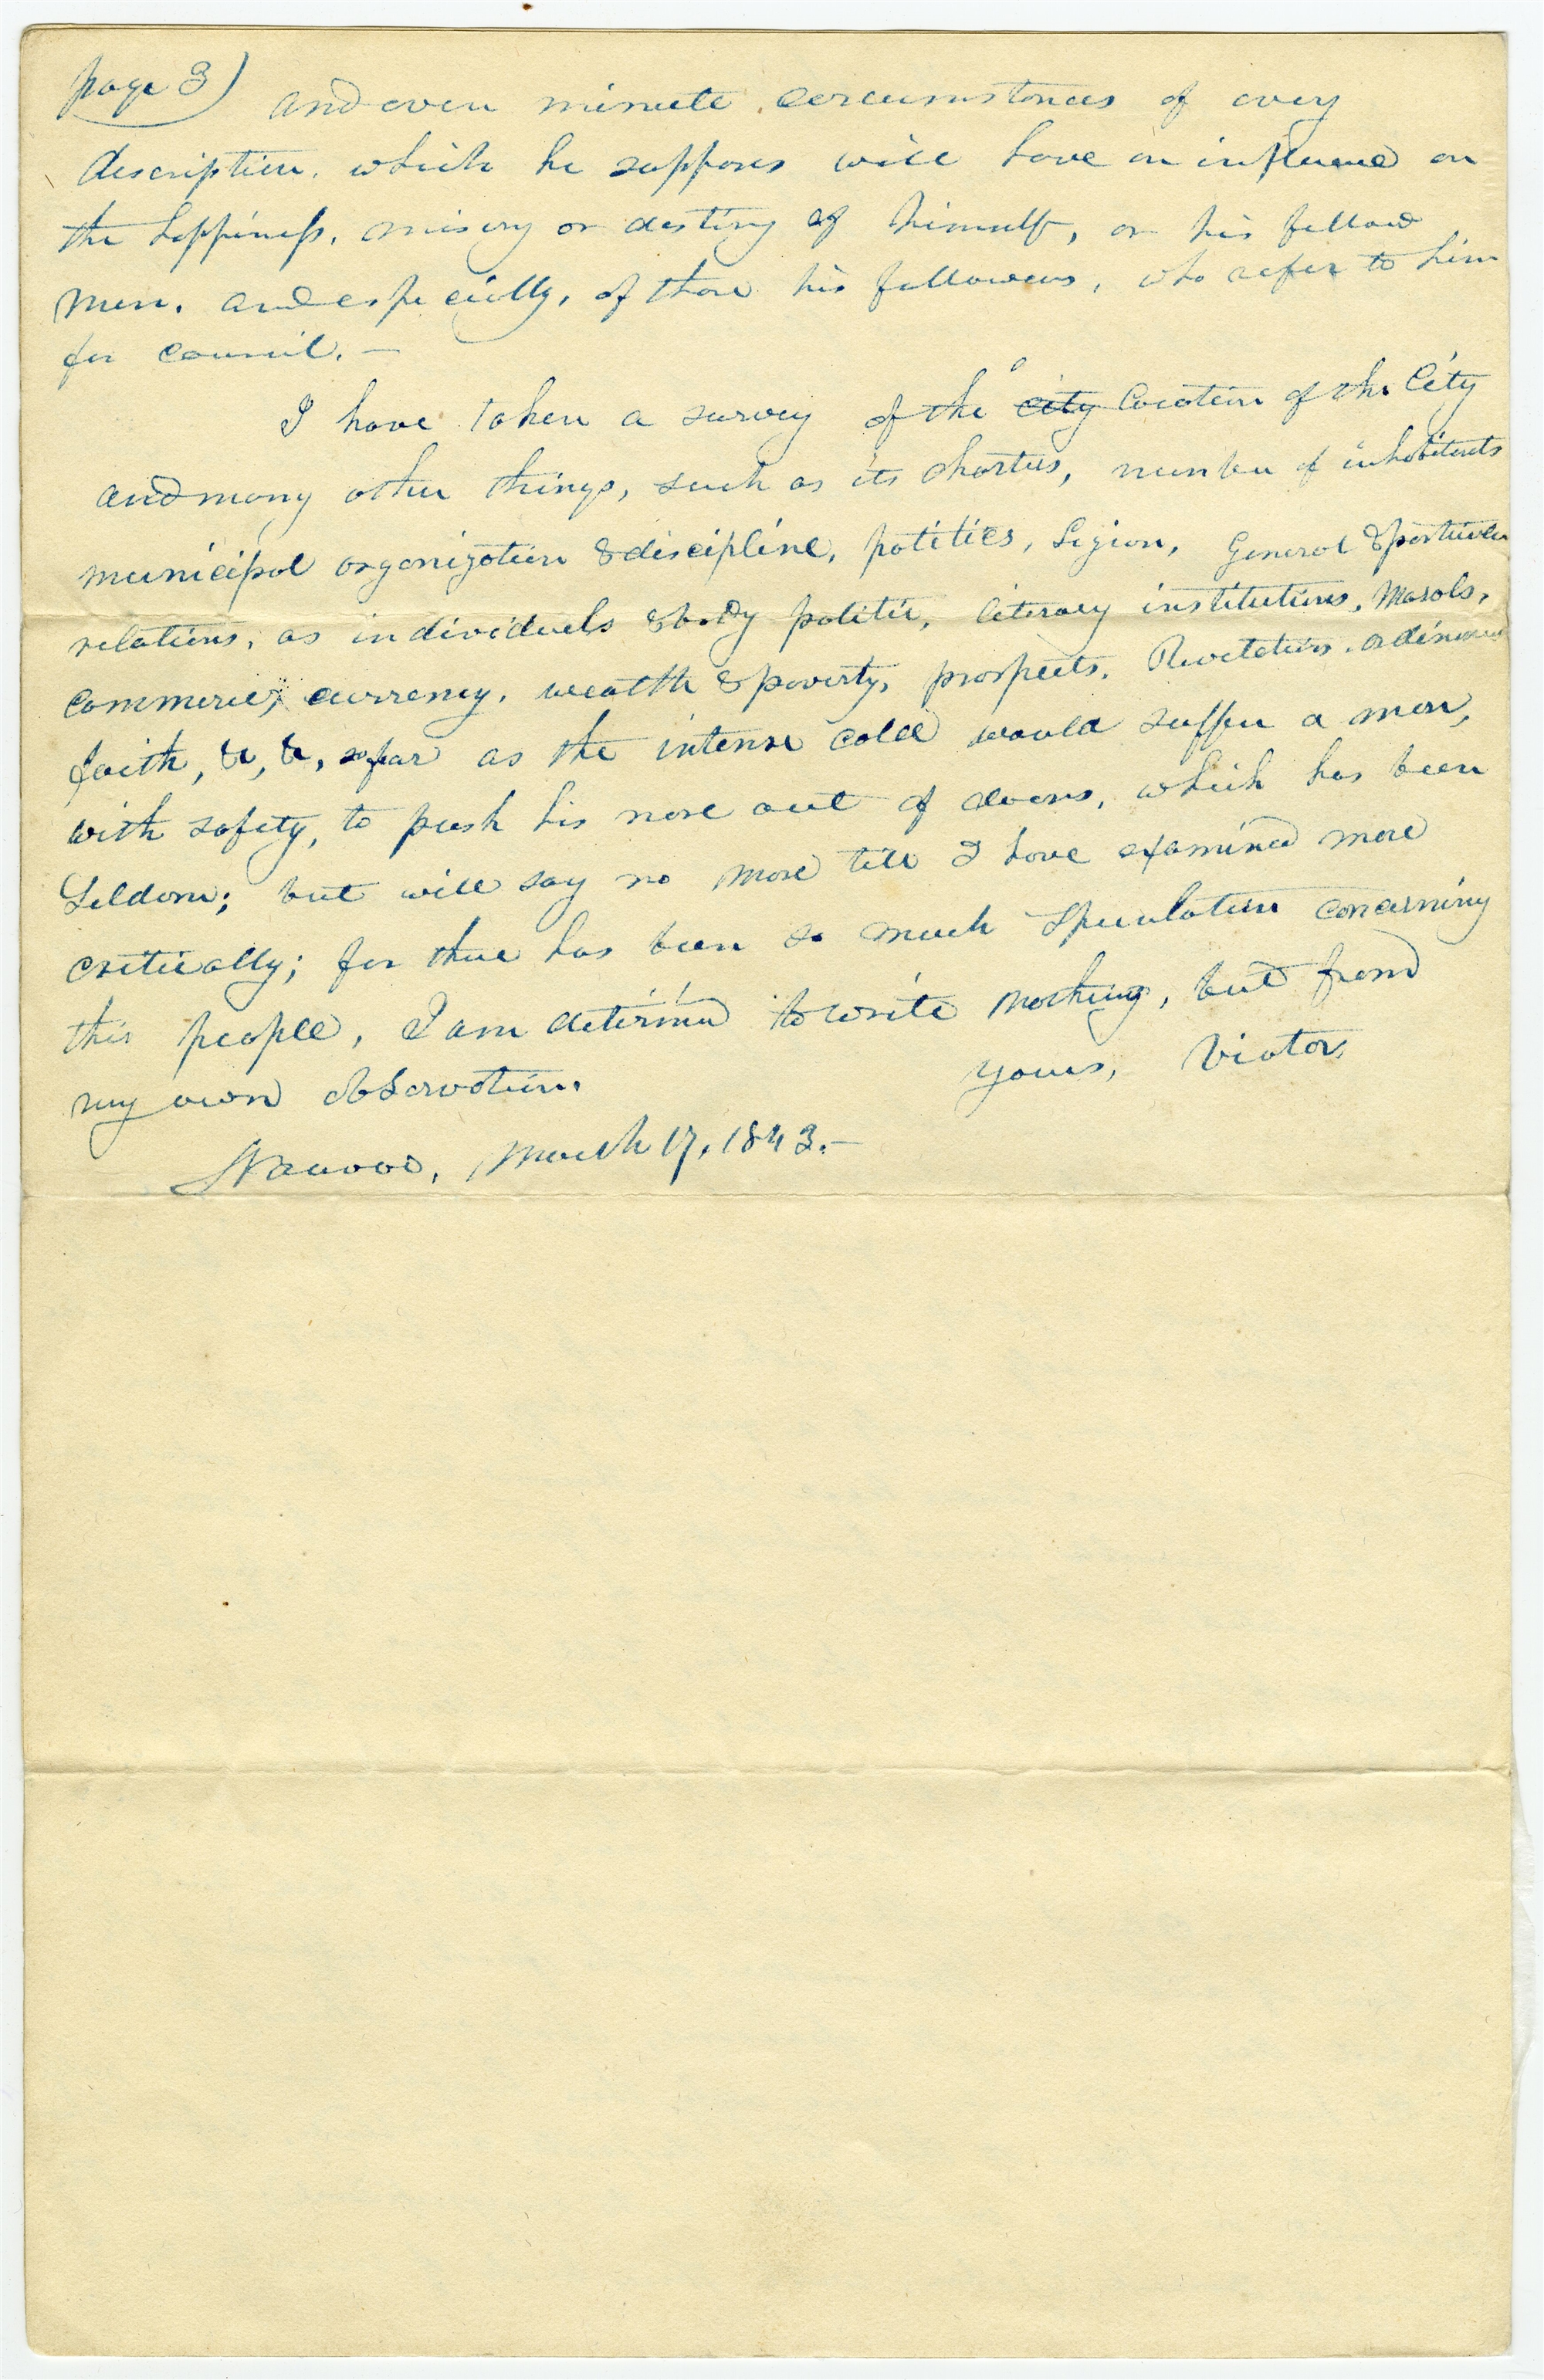 page 3) and even minute circumstances of every
description, which he supposes will have an influence on
the happiness, misery or destiny of himself, or his fellow
men. and especially, of those his followers, who refer to him
for council.—
I have taken a survey of the ~~city~~ location of the City
and many other things, such as its charters, number of inhabitents
municipal organization & discipline, politics, Legion, General & particular
relations, as individuels & body politic, literary institutions, Morals,
commerce, currency, wealth & poverty, prospects, Revelations, ordinances
faith, &c, &c, so far as the intense cold would suffer a man,
with safety, to push his nose out of doors, which has been
Seldom; but will say no more till I have examined more
critically; for there has been so much Speculation concerning
this people, I am determind to write nothing, but from
my own observation. yours, Viator,
Nauvoo, March 17, 1843.—